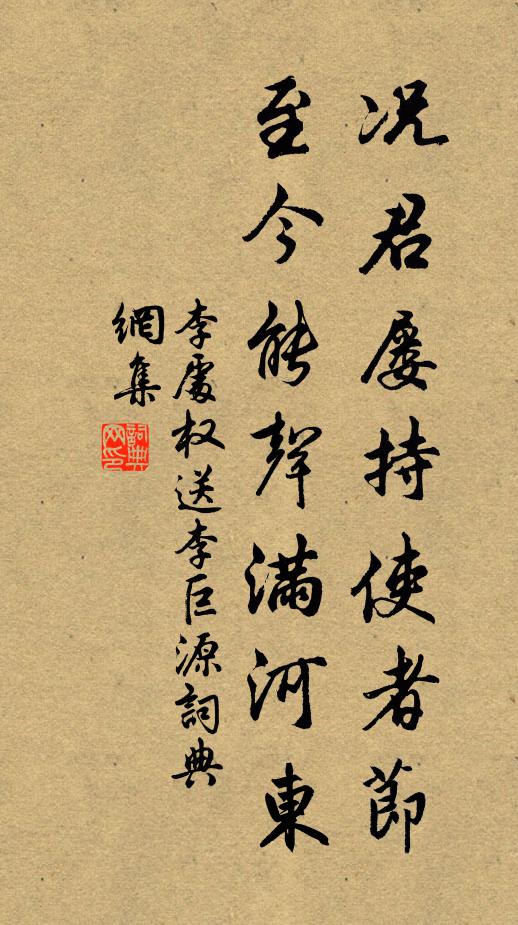 况君屡持使者節
至今能聲滿河東
李處权送李巨源詞典
網集
詞典
网印